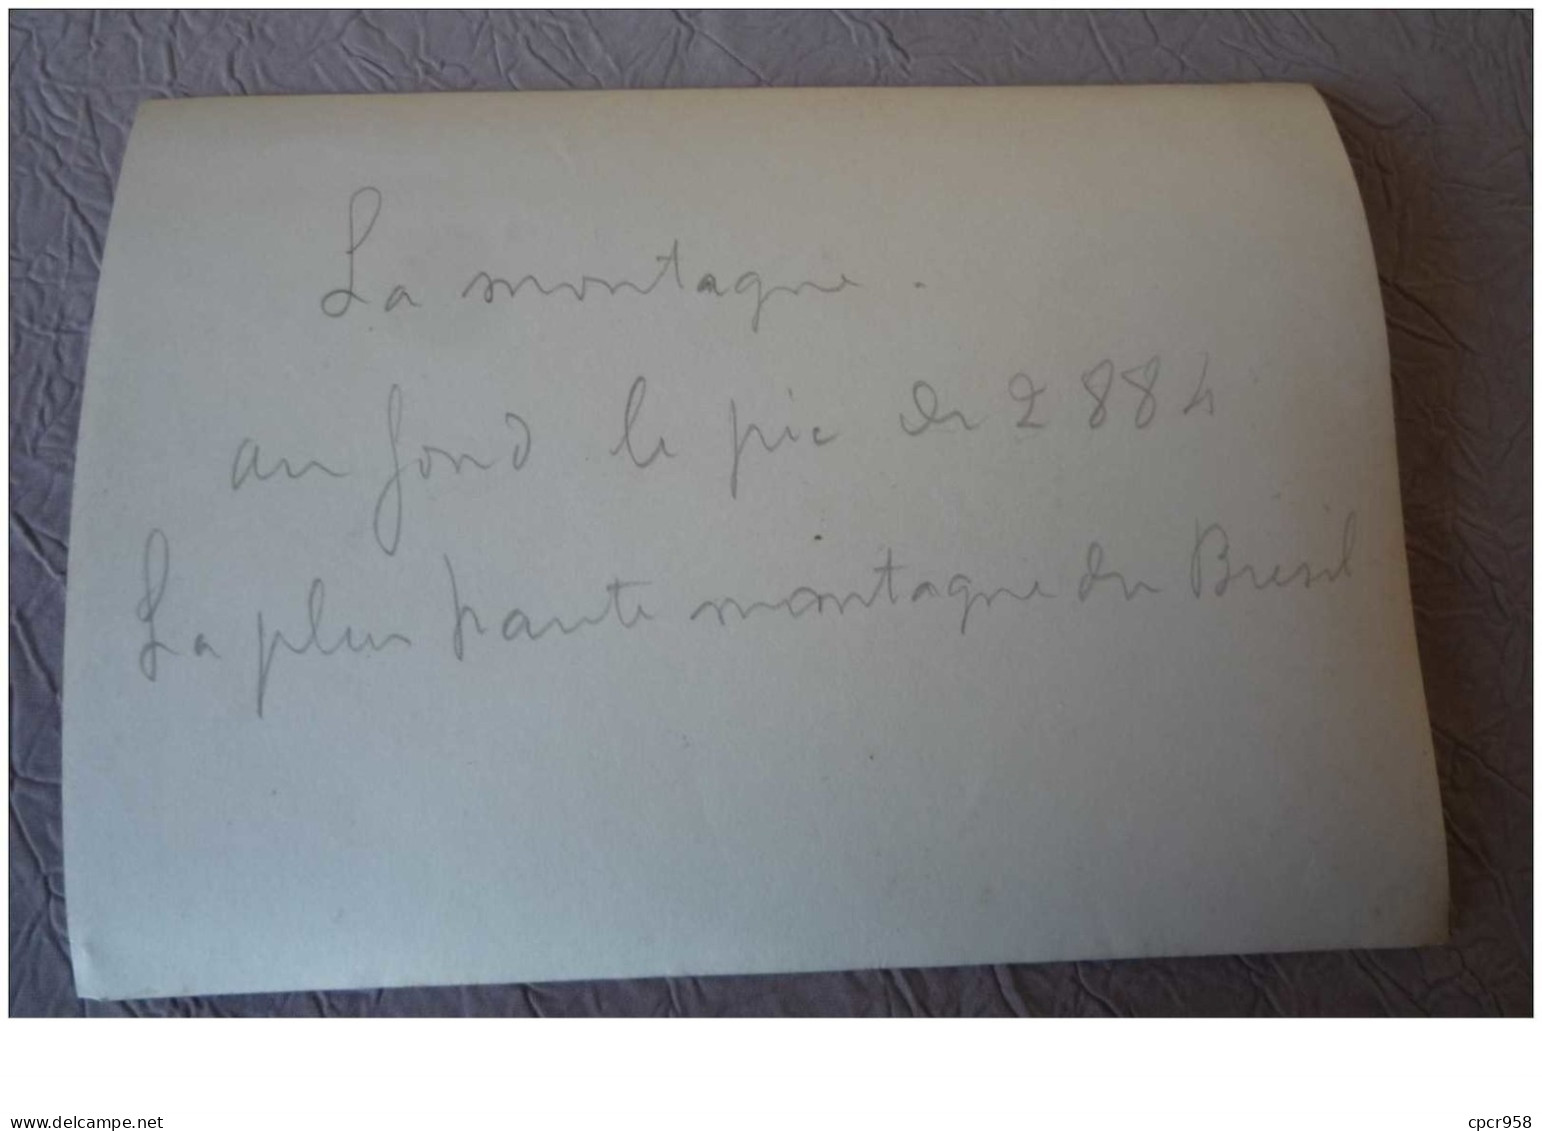 La montagne.
au fond le pic de 2884
La plus haute montagne du Bresil
delcampe.net
cpcr958